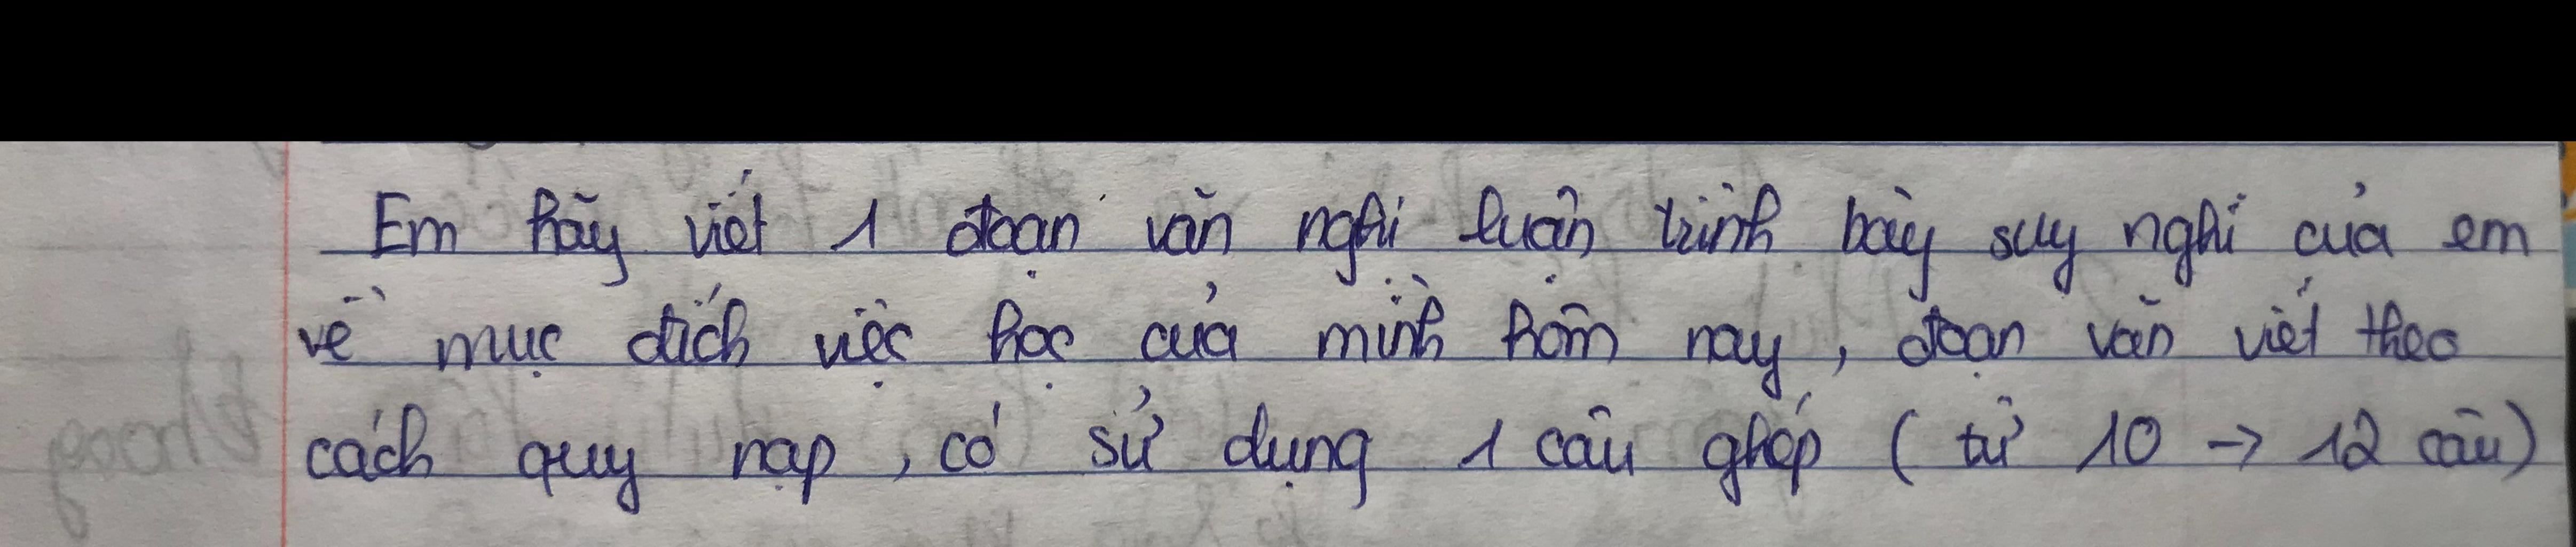 Em hãy viết 1 đoạn văn nghị luận trình bày suy nghĩ của em
về mục đích việc học của mình hôm nay, đoạn văn viết theo
cách quy nạp, có sử dụng 1 câu ghép ( từ 10 → 12 câu)